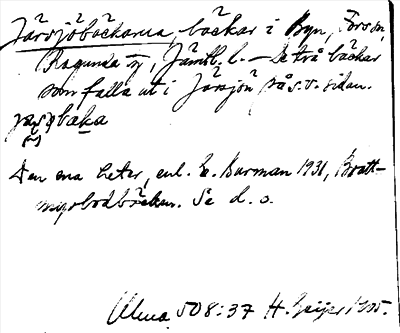 Järsjöbäckarna, bäckar i Byn, Fors sn,
Ragunda tg, Jämtl. l. — De två bäckar
som falla ut i Järsjön på s.v. sidan.
Den ena heter, enl. E. Burman 1931, Bratt-
myrbodbäcken. Se d. o.
Ulma 508:37 H. Geijer 1935.